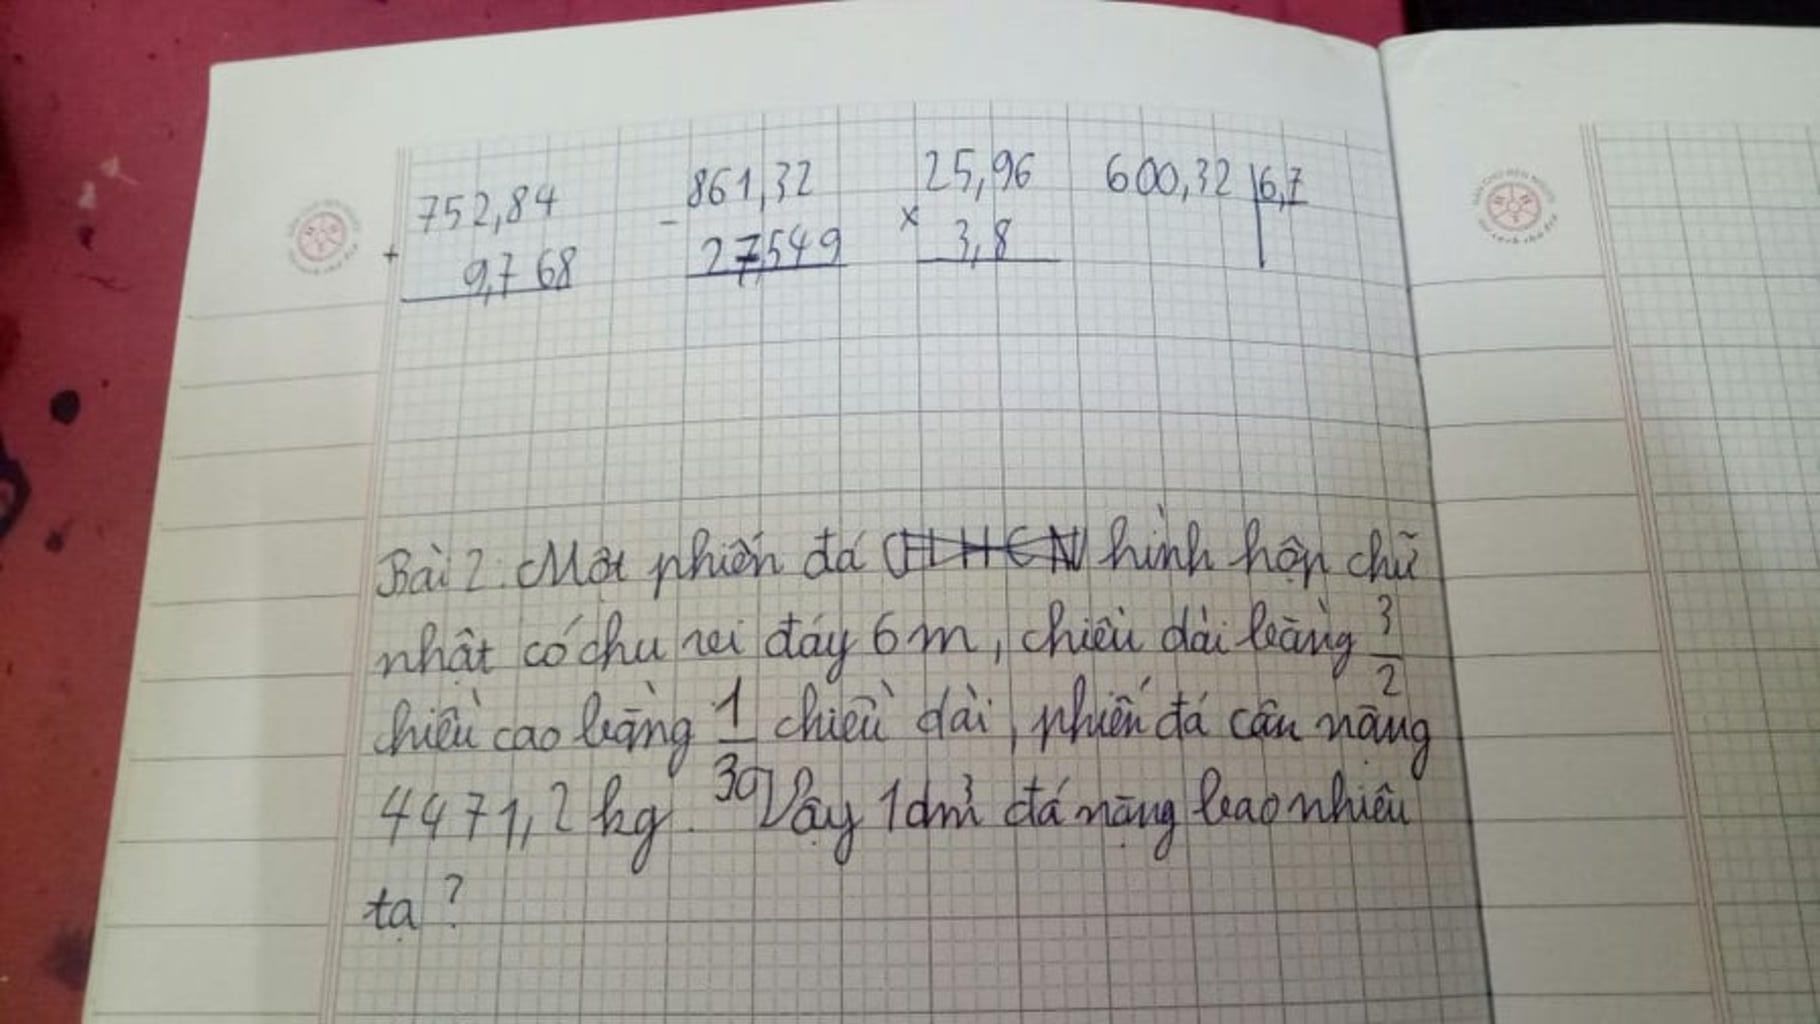 752,84 861,32 25,96 600,32 6,7
+ 9,768 - 27,549 x 3,8
Bài 2: Một phiến đá hình hộp chữ
nhật có chu vi đáy 6m, chiều dài bằng 3/2
chiều cao bằng 1/30 chiều dài, phiến đá cân nặng
4471,2 kg. Vậy 1dm³ đá nặng bao nhiêu
tạ?